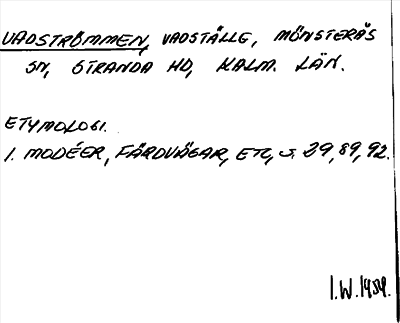 VADSTRÖMMEN, VADSTÄLLE, MÖNSTERÅS
SN, STRANDA HD, KALM. LÄN.
ETYMOLOGI.
1. MODÉER, FÄRDVÄGAR, ETC, S. 29, 89, 92.
I.W. 1954.